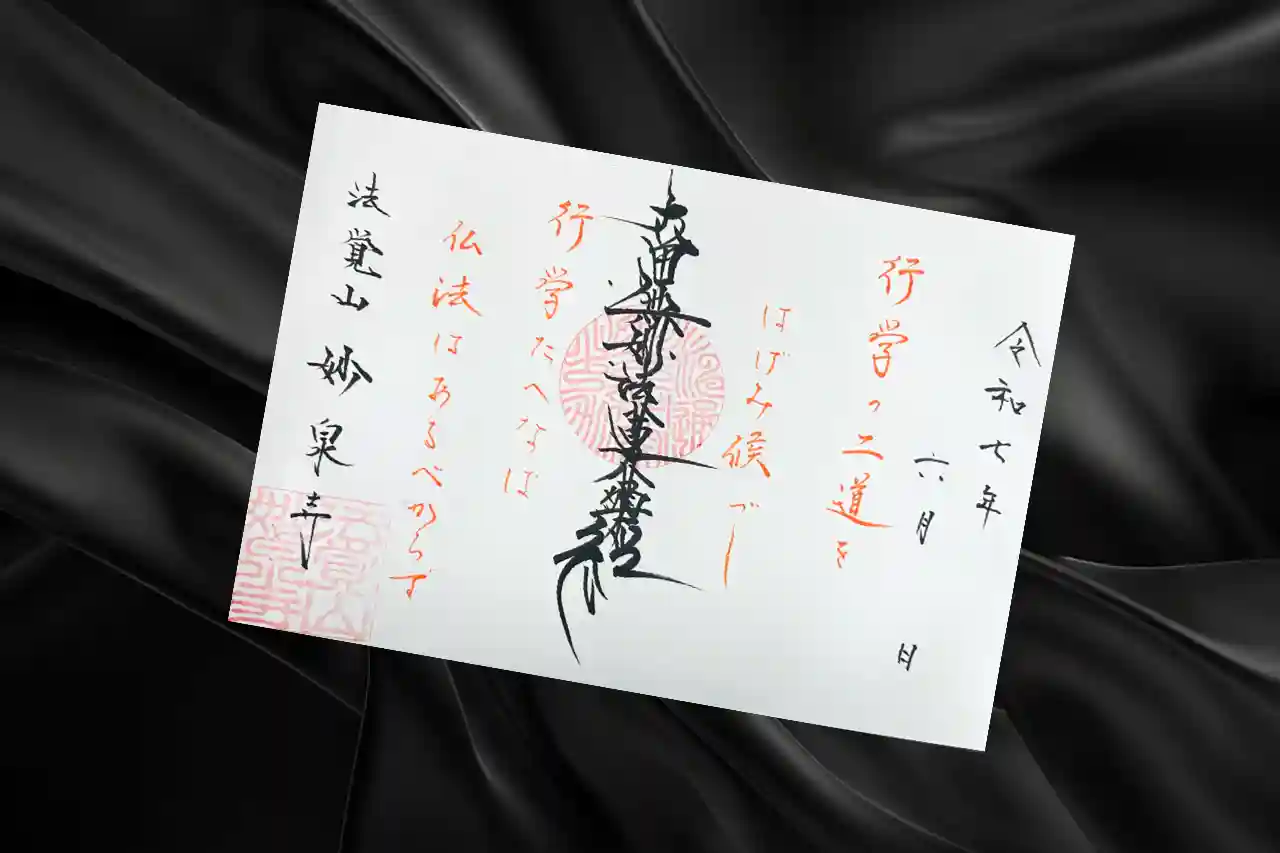 令和七年
六月 日
行学の二道を
はげみ候べし
南無妙法蓮華経
行学たへなば
仏法はあるべからず
法覚山 妙泉寺